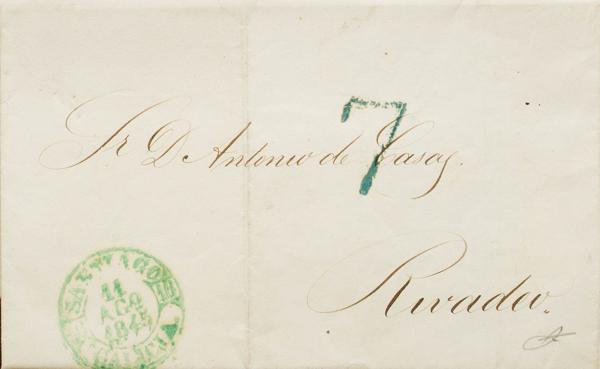 7
Sr D. Antonio de Casas.
Rivadeo.
SANTIAGO
11
AGO
GALICIA